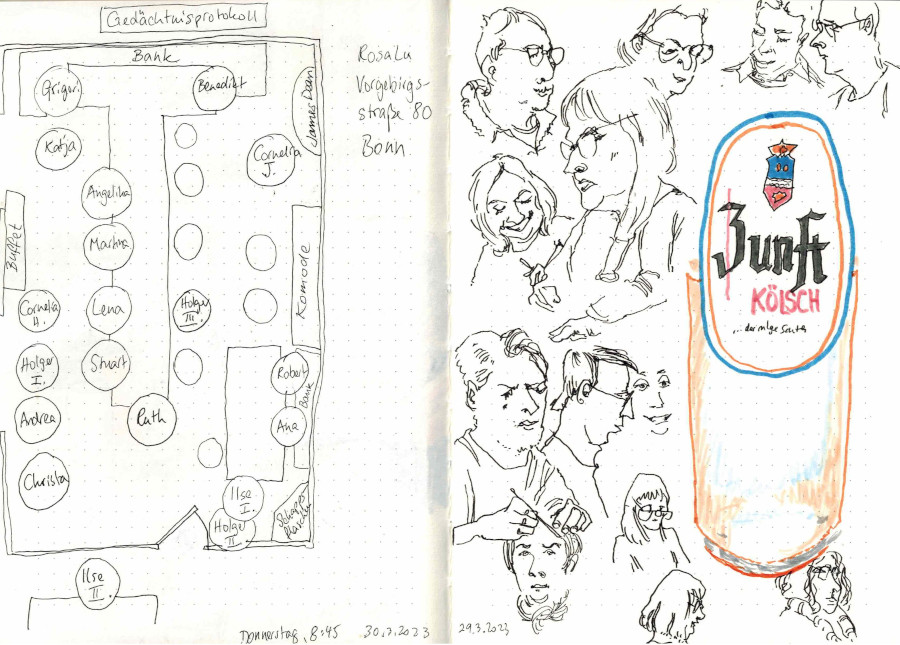 Gedächtnisprotokoll
Bank
Grigori
Benedikt
James Dean
Katja
Cornelia
J.
Angelika
Buffet
Martina
Komode
Cornelia
H.
Lena
Holger
III.
Holger
I.
Stuart
Robert
Bank
Andrea
Ruth
Ana
Christa
Ilse
I.
Holger
II
Ilse
II.
RosaLu
Vorgebirgs-
straße 80
Bonn
Donnerstag, 8:45 30.3.2023
Zunft
KÖLSCH
29.3.2023